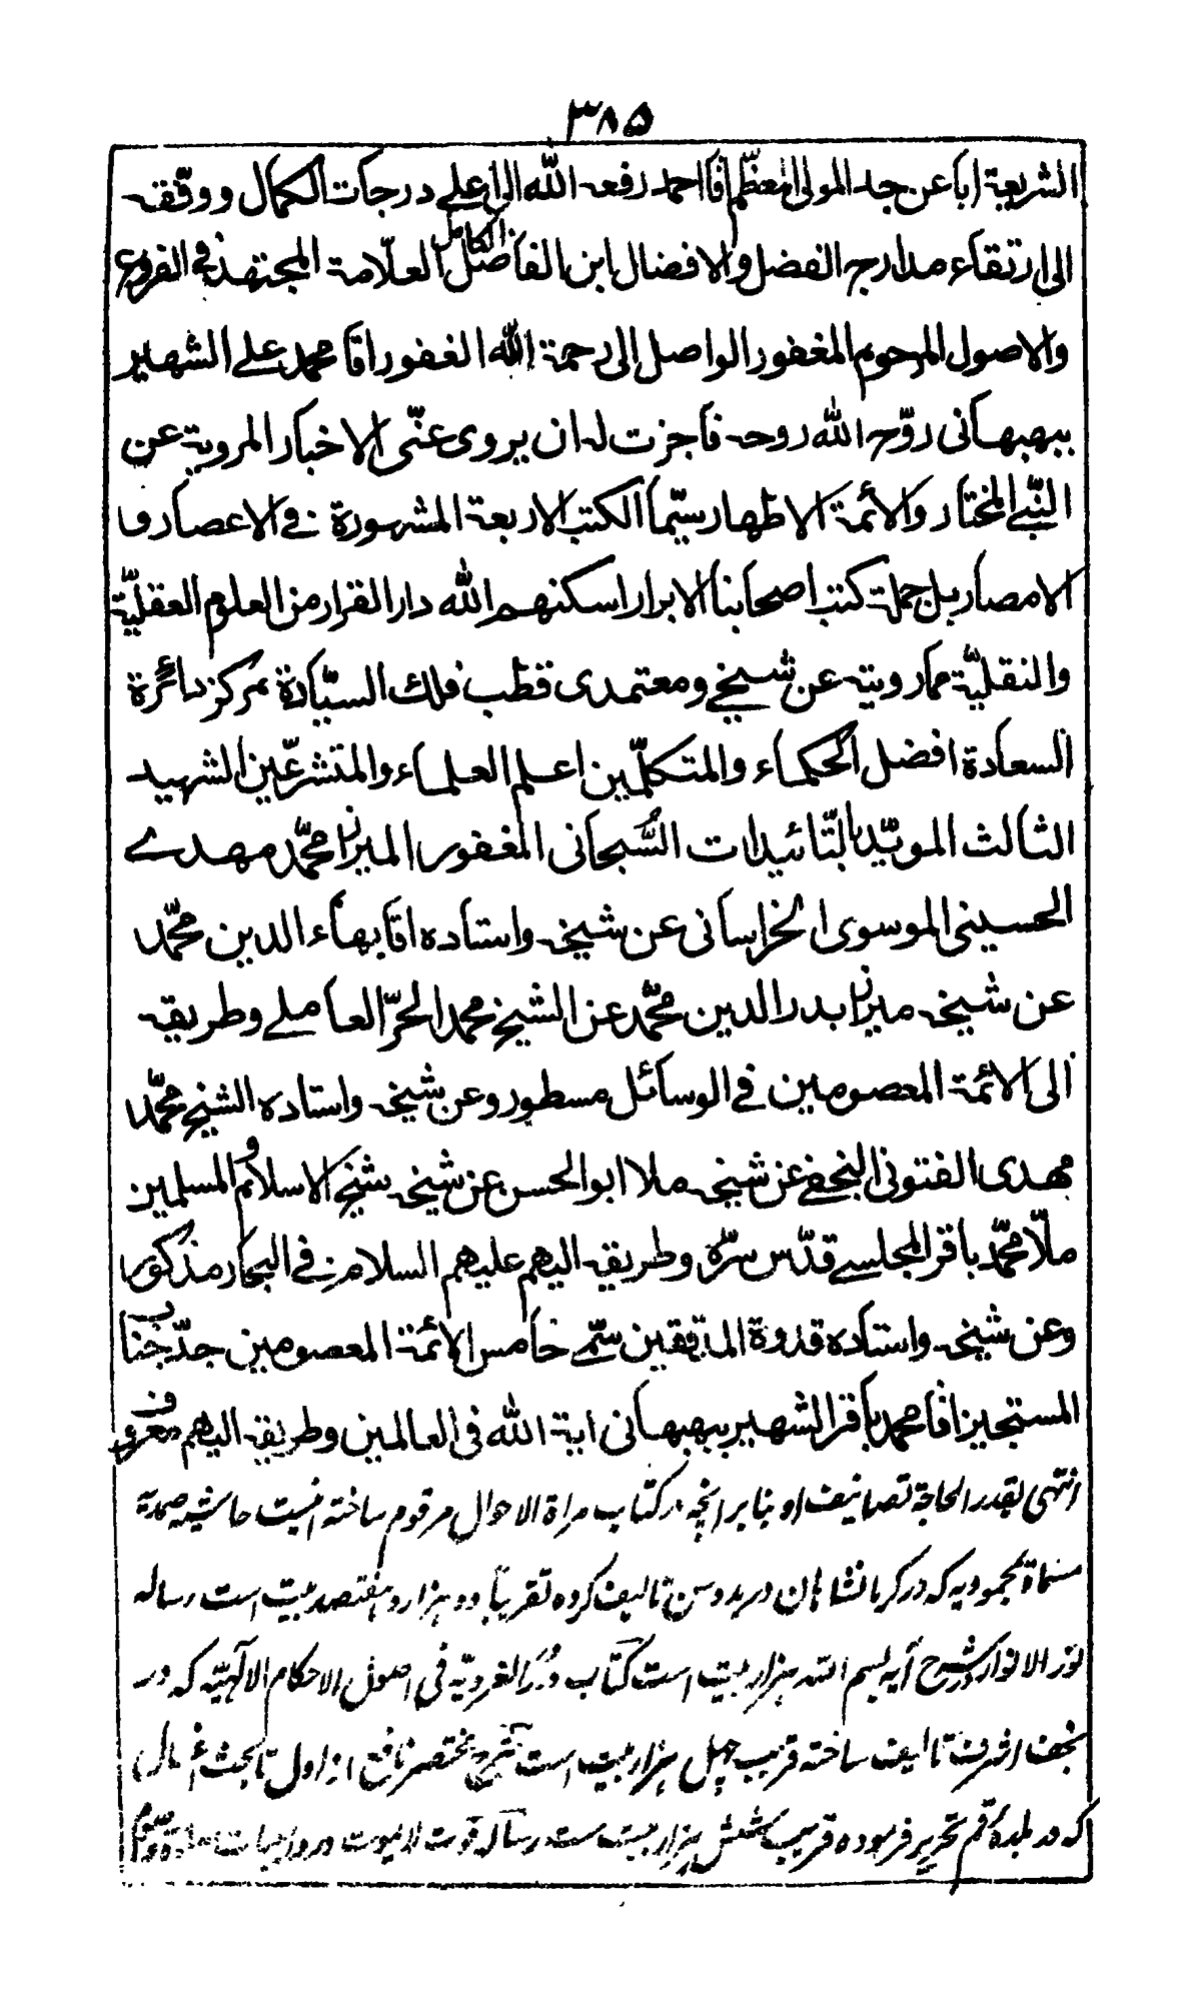 ٣٨٥
الشریعة ابا عن جد المولی المعظم اقا احمد رفعه الله الی اعلی درجات الکمال و وفقه
الی ارتقاء مدارج الفضل والافضال ابن الفاضل الکامل العلّامة المجتهد فی الفروع
والاصول المرحوم المغفور الواصل الی رحمة الله الغفور اقا محمد علی الشهیر
ببهبهانی روّح الله روحه فاجزت له ان یروی عنّی الاخبار المرویة عن
النّبی المختار والائمة الاطهار سیّما الکتب الاربعة المشهورة فی الاعصار و
الامصار بل جملة کتب اصحابنا الابرار اسکنهم الله دار القرار من العلوم العقلیّة
والنقلیّة مما رویته عن شیخی ومعتمدی قطب فلک السیادة مرکز دائرة
السعادة افضل الحکماء والمتکلّمین اعلم العلماء والمتشرعّین الشهید
الثالث المویّد بالتّائیدات السُّبحانی المغفور المیرزا محمّد مهدے
الحسینی الموسوی الخراسانی عن شیخه واستاده اقا بهاء الدین محمّد
عن شیخه میرزا بدر الدین محمّد عن الشیخ محمد الحرّ العاملے وطریقه
الی الائمة المعصومین فی الوسائل مسطور وعن شیخه واستاده الشیخ محمّد
مهدی الفتونی النجفے عن شیخه ملا ابوالحسن عن شیخه شیخ الاسلام و المسلمین
ملّا محمّد باقر المجلسے قدّس سرّه وطریقه الیهم علیهم السلام فی البحار مذکور
وعن شیخه واستاده قدوة المدققین سمّے خامس الائمة المعصومین جدّ جناب
المستجیز اقا محمد باقر الشهیر ببهبهانی ایة الله فی العالمین وطریقه الیهم معروف
انتهی بقدر الحاجة تصانیف او بنا بر انچه در کتاب مراة الاحوال مرقوم ساخته اینست حاشیه صمدیة
مسماة بمحمودیه که در کرمانشاهان در بدو سن تالیف کرده تقریباً دو هزار و هفتصد بیت است رساله
نور الانوار در شرح آیه بسم الله هزار بیت است کتاب درر الغرویّه فی اصول الاحکام الالهیّه که در
نجف اشرف تالیف ساخته قریب چهل هزار بیت است شرح مختصر نافع از اول تا بحث
که در بلدهٔ قم تحریر فرموده قریب شش هزار بیت است رساله قوت لایموت در واجبات